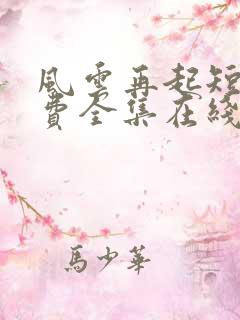 風雲再起短
費全集在綫
馬少華